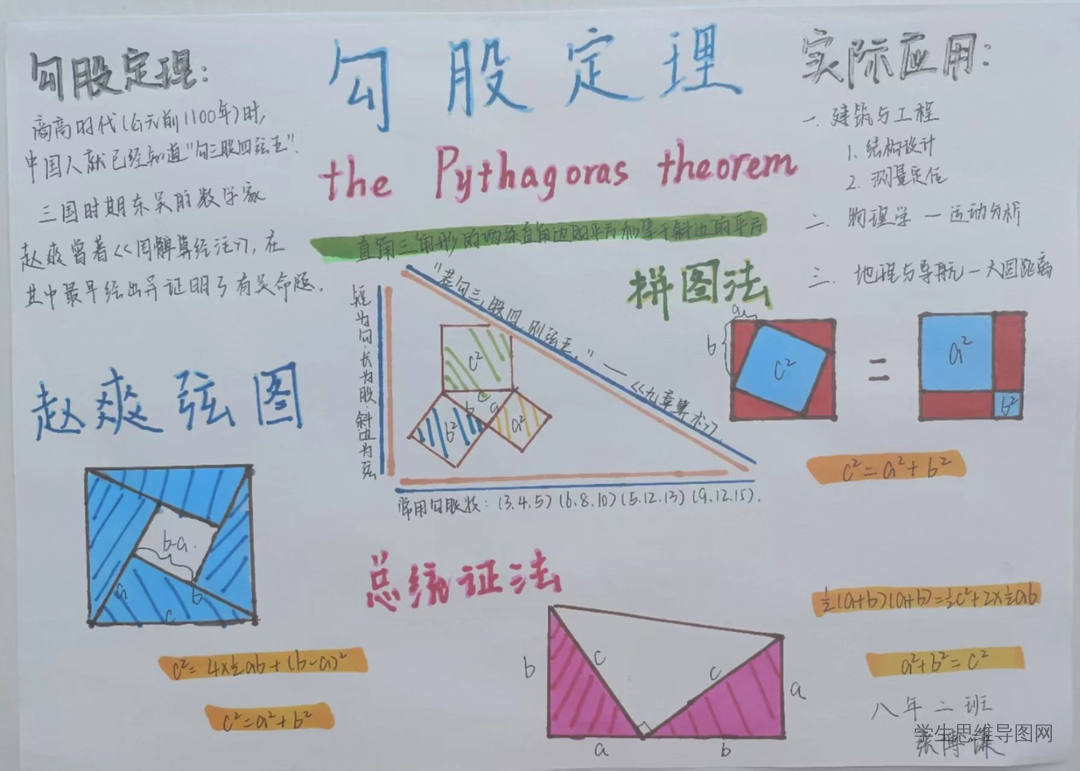 勾股定理:
商高时代(公元前1100年)时,
中国人就已经知道"勾三股四弦五".
三国时期东吴的数学家
赵爽曾著<<周髀算经注>>, 在
其中最早给出并证明了有关命题.
勾股定理
the Pythagoras theorem
直角三角形的两条直角边的平方和等于斜边的平方
实际应用:
一. 建筑与工程
1. 结构设计
2. 测量定位
二. 物理学 — 运动分析
三. 地理与导航 — 大圆距离
短为勾·长为股·斜边为弦
"若勾三, 股四, 则弦五." —— <<九章算术>>.
c²
b
a
b²
a²
常用勾股数: (3.4.5) (6.8.10) (5.12.13) (9.12.15).
拼图法
a
b
c²
=
a²
b²
c²=a²+b²
赵爽弦图
b-a
a
b
c
c²=4×½ab+(b-a)²
c²=a²+b²
总统证法
b
c
c
a
a
b
½(a+b)(a+b)=½c²+2×½ab
a²+b²=c²
八年二班
学生思维导图网